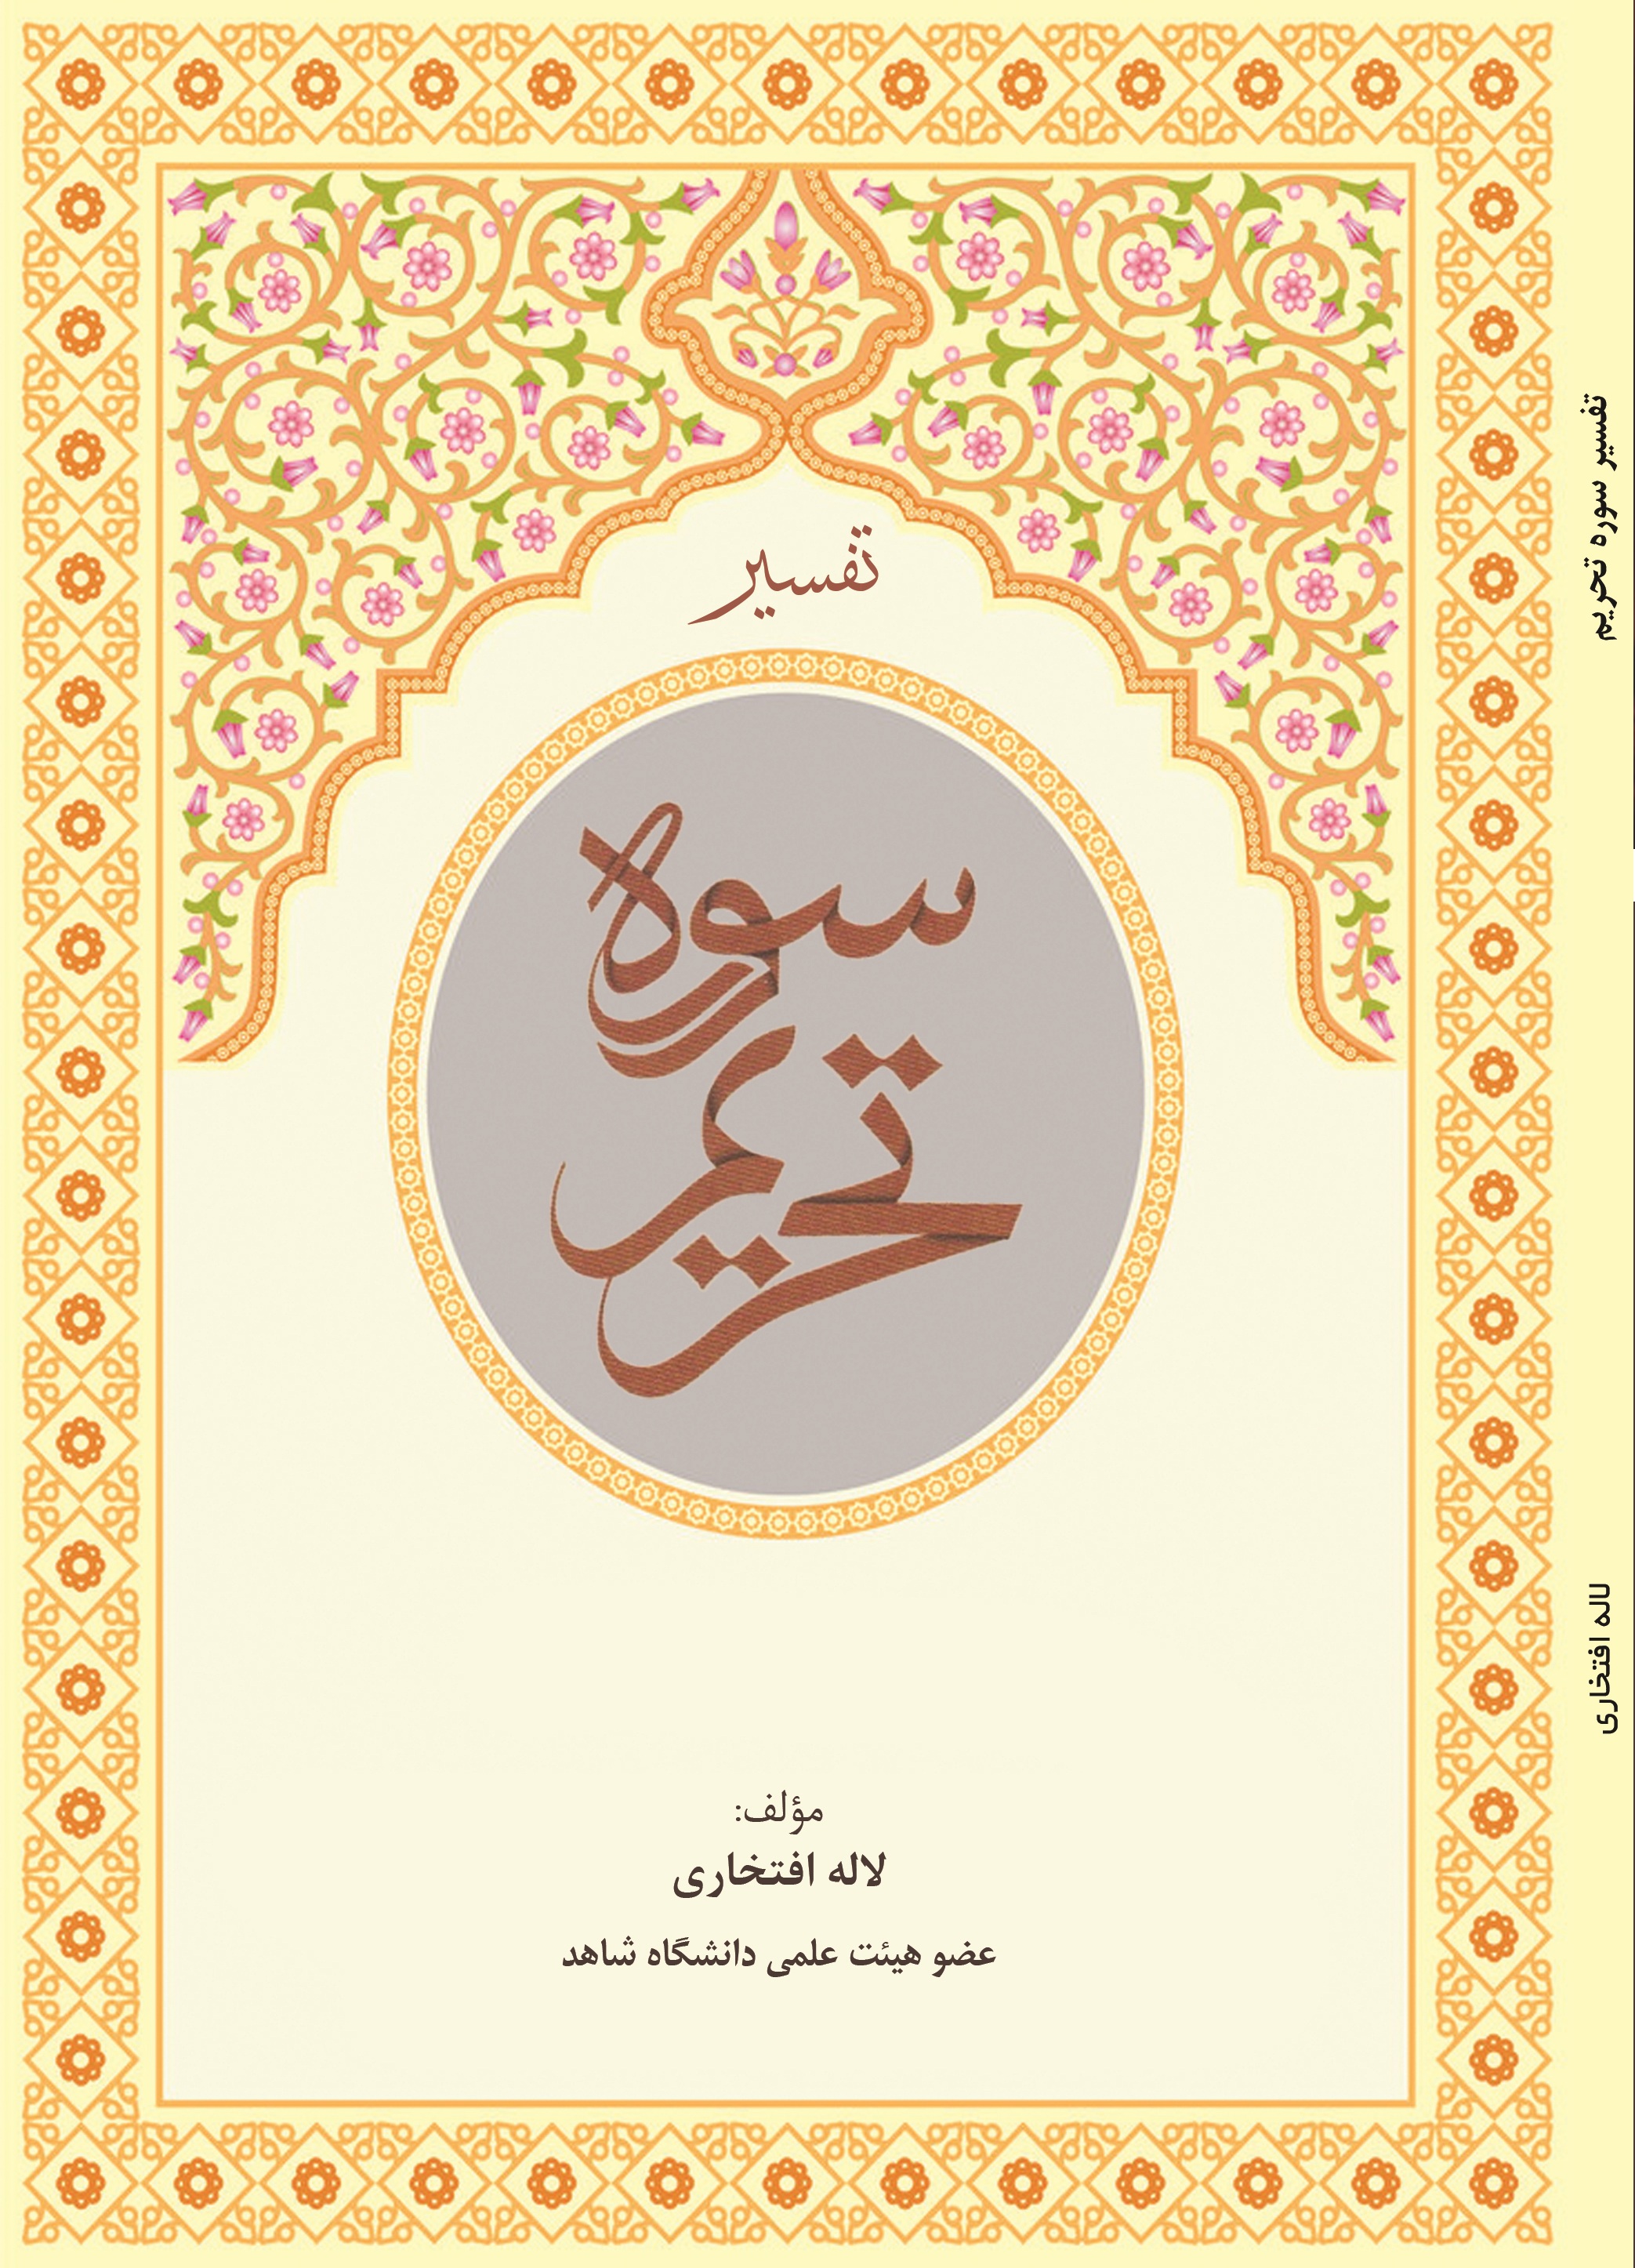 تفسیر
سوره
تحریم
مؤلف:
لاله افتخاری
عضو هیئت علمی دانشگاه شاهد
تفسیر سوره تحریم
لاله افتخاری